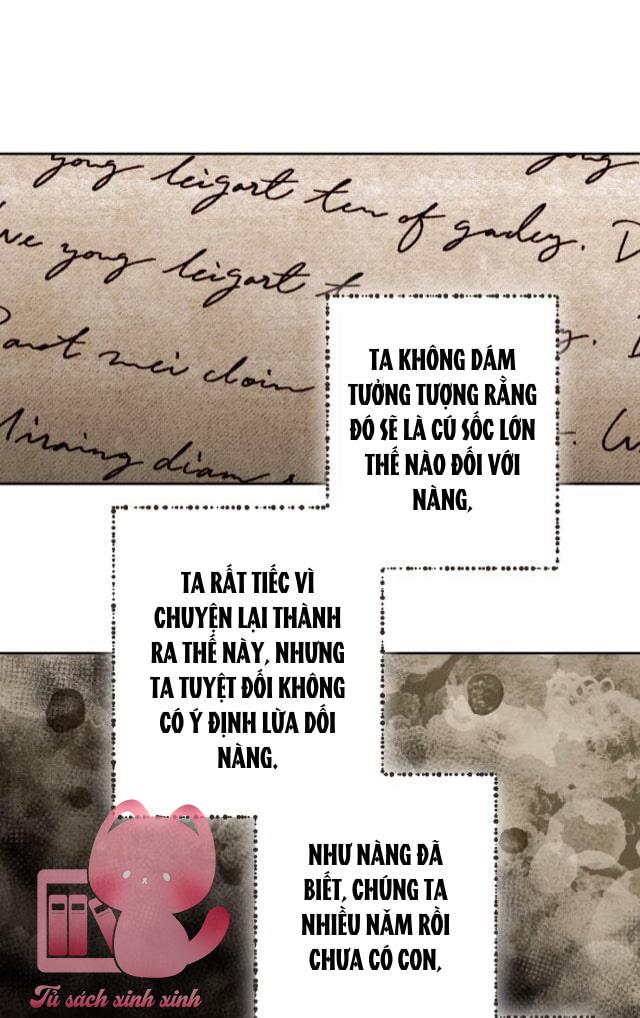 yong leigart ten of gadey. D
ve yong leigart t
mei cloin
diam
TA KHÔNG DÁM
TƯỞNG TƯỢNG RẰNG
ĐÓ SẼ LÀ CÚ SỐC LỚN
THẾ NÀO ĐỐI VỚI
NÀNG,
TA RẤT TIẾC VÌ
CHUYỆN LẠI THÀNH
RA THẾ NÀY, NHƯNG
TA TUYỆT ĐỐI KHÔNG
CÓ Ý ĐỊNH LỪA DỐI
NÀNG.
NHƯ NÀNG ĐÃ
BIẾT, CHÚNG TA
NHIỀU NĂM RỒI
CHƯA CÓ CON,
Tủ sách xinh xinh